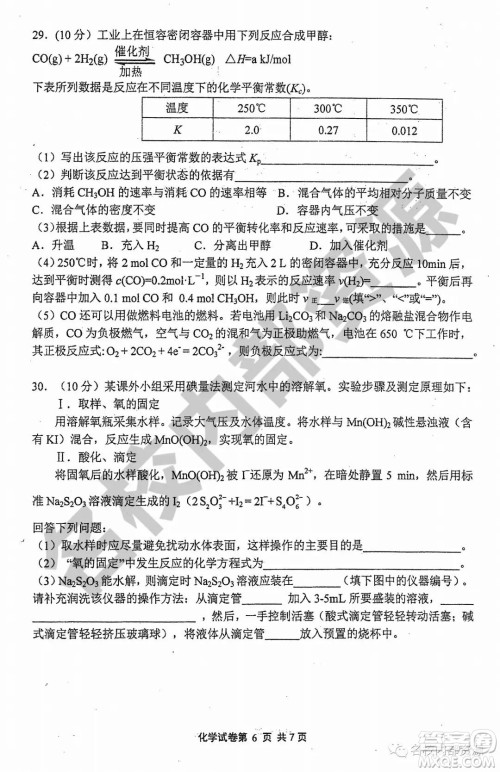 29.(10 分)工业上在恒容密闭容器中用下列反应合成甲醇:
CO(g) + 2H₂(g) 催化剂 加热 CH₃OH(g) △H=a kJ/mol
下表所列数据是反应在不同温度下的化学平衡常数(Kc)。
温度 250℃ 300℃ 350℃
K 2.0 0.27 0.012
(1)写出该反应的压强平衡常数的表达式 Kp
(2)判断该反应达到平衡状态的依据是
A.消耗 CH₃OH 的速率与消耗 CO 的速率相等 B.混合气体的平均相对分子质量不变
C.混合气体的密度不变 D.容器内气体压强不变
(3)根据上表数据,要同时提高 CO 的平衡转化率和反应速率,可采取的措施是
A.升温 B.充入 H₂ C.分离出甲醇 D.加入催化剂
(4)250℃时,将 2 mol CO 和 H₂充入 2 L 的密闭容器中,充分反应 10min 后,
达到平衡时测得 c(CO)=0.2mol·L⁻¹,则此时反应速率 v(H₂)= 。平衡后再
向容器中加入 CO 和 0.4 mol CH₃OH,此时 v正 v逆(填“>”、“<”或“=”)。
(5)CO 还可以用做燃料电池的燃料。若电池用 Li₂CO₃和 Na₂CO₃的熔融盐混合物作电
解质,CO 为负极燃气,空气与 CO₂的混合气为正极助燃气,电池在 650 ℃下工作,
其正极反应式: O₂ + 2CO₂ + 4e⁻= 2CO₃²⁻,则负极反应式为 。
30.(10 分)某课外小组采用碘量法测定河水中的溶解氧。实验步骤及测定原理如下:
Ⅰ.取样、氧的固定
用溶解氧瓶采集水样。记录大气压及水体温度。将水样与 Mn(OH)₂碱性悬浊液(含
有 KI)混合,反应生成 MnO(OH)₂,实现氧的固定。
Ⅱ.酸化、滴定
将固氧后的水样酸化,MnO(OH)₂被 I⁻还原为 Mn²⁺,在暗处静置 5 min,然后用标
准 Na₂S₂O₃ 溶液滴定生成的 I₂(2S₂O₃²⁻ = 2I⁻+ S₄O₆²⁻)。
回答下列问题:
(1)取水样时应尽量避免扰动水体表面,主要目的是 。
(2)“氧的固定”中发生反应的化学方程式为 。
(3)Na₂S₂O₃ 能水解,则滴定时 Na₂S₂O₃ 溶液应装在 (填下图中的仪器编号)。
请补充润洗该仪器的操作方法:从滴定管 加入 3-5mL 所要盛装的溶液,
,然后,一手控制活塞(酸式滴定管轻轻转动活塞;碱
式滴定管轻轻挤压玻璃球),将液体从滴定管 放入预置的烧杯中。
化学试卷第 6 页 共 7 页